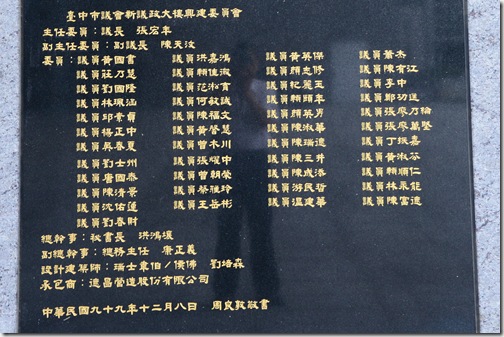 臺中市議會新議政大樓興建委員會
主任委員：議長 張宏年
副主任委員：副議長 陳天汶
委員：議員黃國書 議員洪嘉鴻 議員黃英 議員蕭杰
議員莊乃慧 議員賴佳微 議員志修 議員陳有江
議員劉國隆 議員范淞育 議員紀麗玉 議員李中
議員林珮涵 議員何敏誠 議員賴頤年 議員鄭功進
議員邱素貞 議員陳福文 議員顏英月 議員張廖乃綸
議員楊正中 議員黃營慧 議員陳淑華 議員張廖萬堅
議員吳春夏 議員曾木川 議員陳瑞德 議員丁振嘉
議員劉士州 議員張耀中 議員陳三井 議員黃淑芬
議員唐國泰 議員曾朝榮 議員陳成添 議員賴順仁
議員陳清景 議員蔡雅玲 議員游民哲 議員林永能
議員沈佑蓮 議員王岳彬 議員溫建華 議員陳富德
議員劉春財
總幹事：祕書長 洪鴻壤
副總幹事：總務主任 康正義
設計建築師：瑞士韋伯／侯佛 劉培森
承包商：德昌營造股份有限公司
中華民國九十九年十二月八日 周良敦敬書